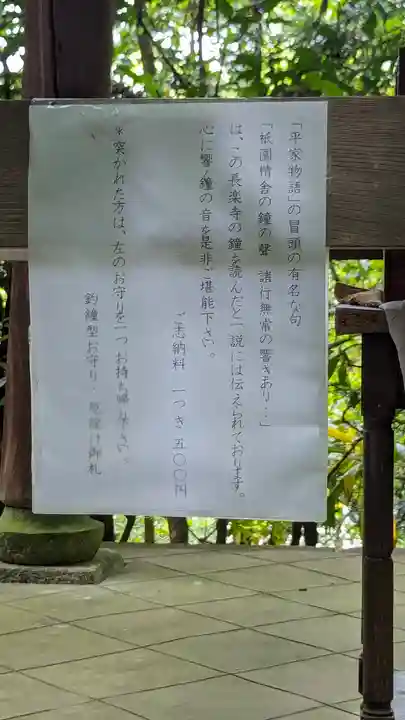 「平家物語」の冒頭の有名な句
「祇園精舎の鐘の聲　諸行無常の響きあり…」
は、この長楽寺の鐘を読んだと一説には伝えられております。
心に響く鐘の音を是非ご堪能下さい。
ご志納料　一つき五〇〇円
突かれた方は、左のお守りを一つお持ち帰り下さい。
釣鐘型お守り・厄除け御札